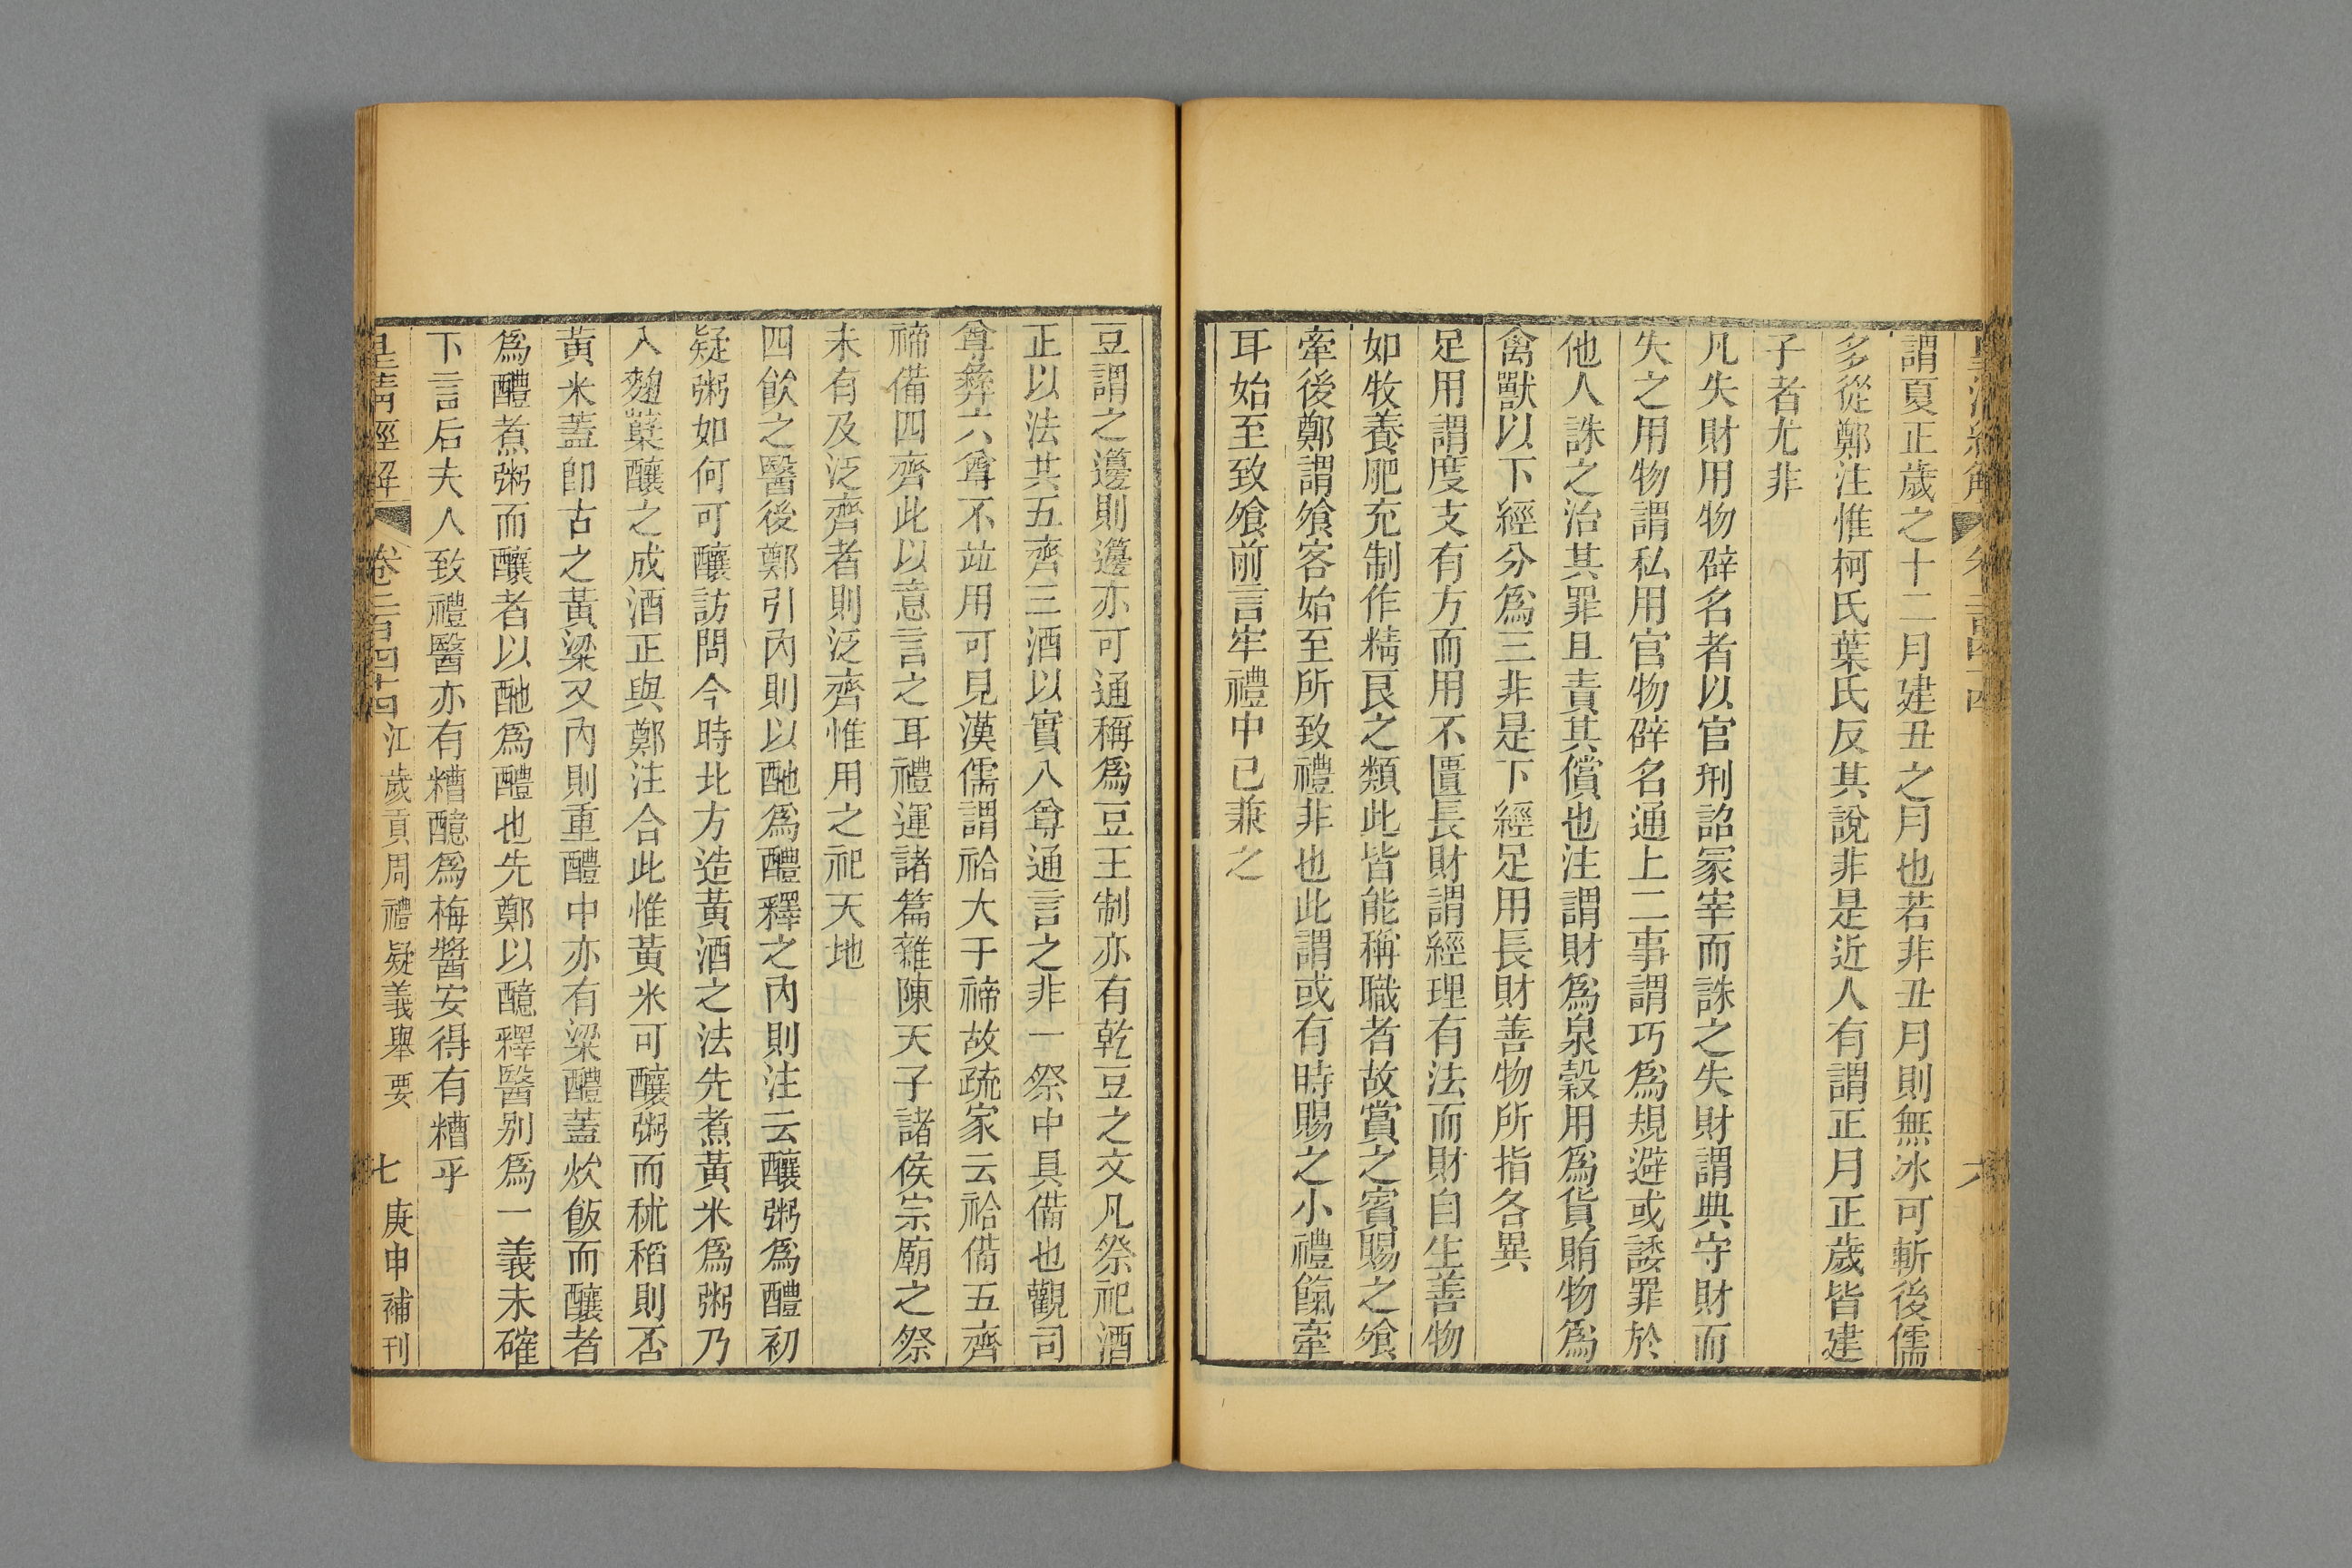 謂夏正歲之十二月建丑之月也若非丑月則無冰可斬後儒
多從鄭注惟柯氏葉氏反其說非是近人有謂正月正歲皆建
子者尤非
凡失財用物辟名者以官刑詔冢宰而誅之失財謂典守財而
失之用物謂私用官物辟名通上二事謂巧爲規避或諉罪於
他人誅之治其罪且責其償也注謂財爲泉穀用爲貨賄物爲
禽獸以下經分爲三非是下經足用長財善物所指各異
足用謂度支有方而用不匱長財謂經理有法而財自生善物
如牧養肥充制作精良之類此皆能稱職者故賞之賓賜之飧
牽後鄭謂飧客始至所致禮非也此謂或有時賜之小禮餼牽
耳始至致飧前言牢禮中已兼之
豆謂之籩則籩亦可通稱爲豆王制亦有乾豆之文凡祭祀酒
正以法共五齊三酒以實八尊通言之非一祭中具備也觀司
尊彝六尊不竝用可見漢儒謂祫大于禘故疏家云祫備五齊
禘備四齊此以意言之耳禮運諸篇雜陳天子諸侯宗廟之祭
未有及泛齊者則泛齊惟用之祀天地
四飲之醫後鄭引內則以酏爲醴釋之內則注云釀粥爲醴初
疑粥如何可釀訪問今時北方造黃酒之法先煮黃米爲粥乃
入麴糵釀之成酒正與鄭注合此惟黃米可釀粥而秫稻則否
黃米蓋卽古之黃粱又內則重醴中亦有粱醴蓋炊飯而釀者
爲醴煮粥而釀者以酏爲醴也先鄭以醷釋醫别爲一義未確
下言后夫人致禮醫亦有糟醷爲梅醬安得有糟乎
皇清經解 卷二百四十四 江歲貢周禮疑義舉要 七 庚申補刊